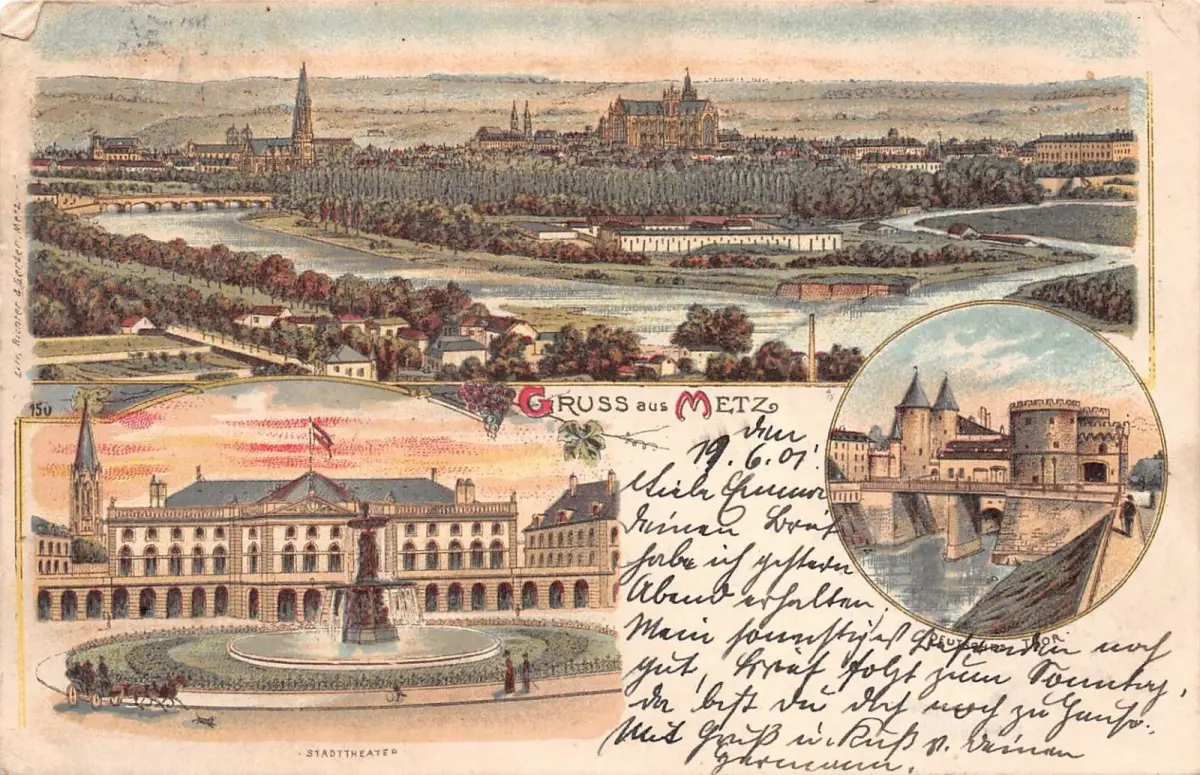 Lith. Brunner & Gaertner, Metz.
150
GRUSS aus METZ
den
19.6.01.
Liebe Emma
deinen Brief
habe ich gestern
Abend erhalten.
Mein sonstiges Befinden noch
gut, Brief folgt zum Sonntag,
da bist du doch noch zu Hause.
Mit Gruß u. Kuß v. deinen
Hermann.
DEUTSCHES THOR.
STADTTHEATER